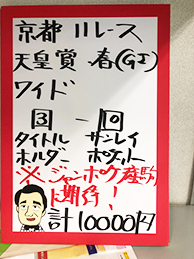 京都 11レース
天皇賞・春(GⅠ)
ワイド
3 - 10
タイトル サンレイ
ホルダー ポケット
※ジャンポケ産駒
に期待!
計10000円